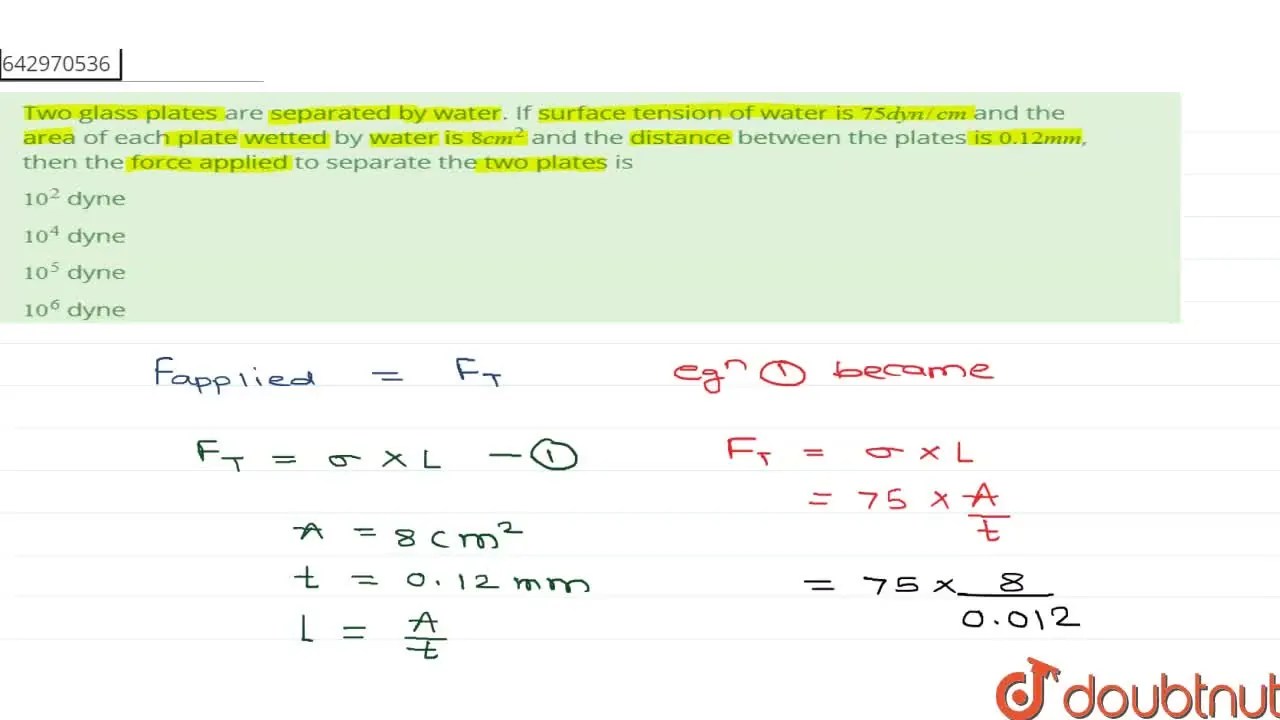 642970536
Two glass plates are separated by water. If surface tension of water is 75dyn/cm and the
area of each plate wetted by water is 8cm² and the distance between the plates is 0.12mm,
then the force applied to separate the two plates is
10² dyne
10⁴ dyne
10⁵ dyne
10⁶ dyne
Fapplied = F_T
F_T = σ × L — ①
A = 8cm²
t = 0.12mm
L = A/t
eqⁿ ① became
F_T = σ × L
= 75 × A/t
= 75 × 8/0.012
doubtnut